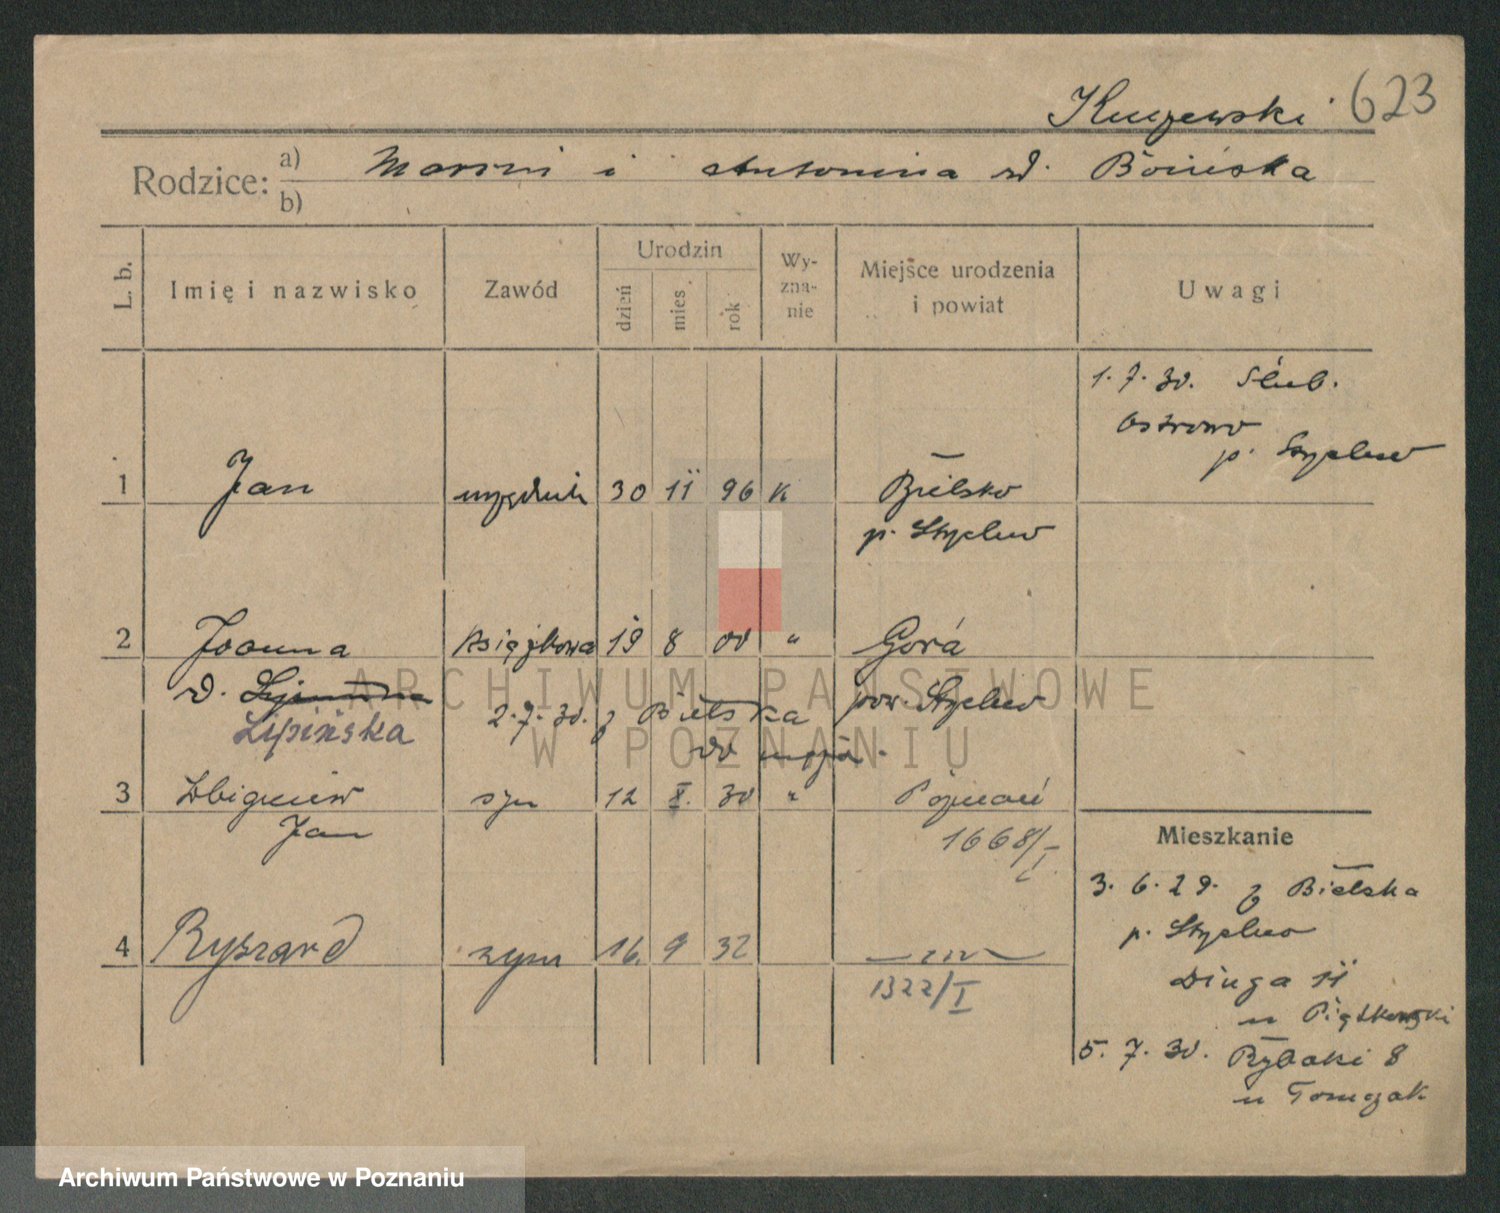 623
Rodzice: a) Marcin i Antonina
b)
L. b.
Imię i nazwisko
Zawód
Urodzin
dzień
mies.
rok
Wy-
zna-
nie
Miejsce urodzenia
i powiat
Uwagi
1. 7. 30. Ślub.
Ostrowo
p. Strzelno
1 Jan urzędnik 30 11 96 K Bielsko
p. Strzelno
2 Joanna Książkowa 19 8 00 " Góra
Lipińska
pow. Strzelno
2. 7. 30. z Bielska
do męża.
3 Zbigniew syn 12 X. 30 " Poznań
Jan
1668/I
Mieszkanie
3. 6. 29. z Bielska
p. Strzelno
Długa 11
u Piątkowski
4 Ryszard syn 16. 9 32
1322/I
5. 7. 30. Rybaki 8
u Tomczak
ARCHIWUM PAŃSTWOWE
W POZNANIU
Archiwum Państwowe w Poznaniu